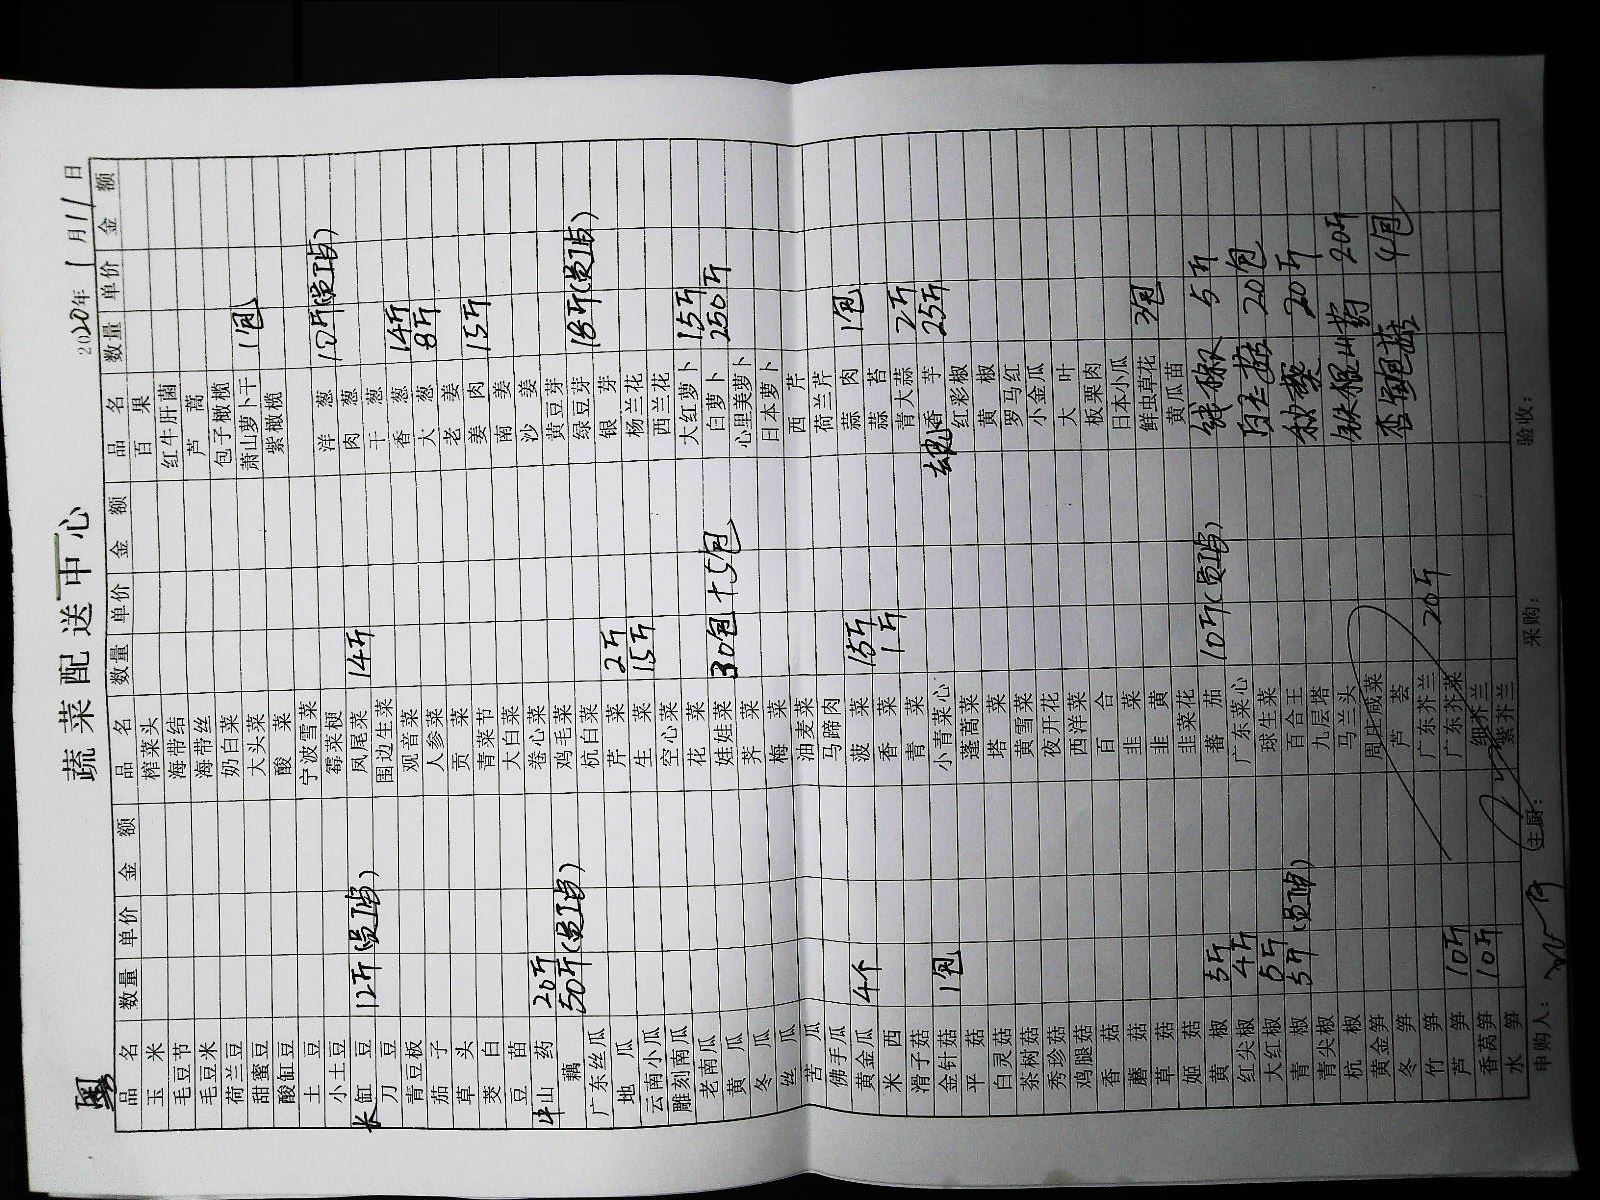 蔬菜配送中心
粤
2020年1月11日
品名 数量 单价 金额
玉米
毛豆节
毛豆米
荷兰豆
甜蜜豆
酸缸豆
土豆
小土豆
长缸豆 12斤(员工点)
刀豆
青豆板
茄子
草头
茭白
豆苗
山药 20斤
藕 50斤(员工点)
广东丝瓜
地瓜
云南小瓜
雕刻南瓜
老南瓜
黄瓜
冬瓜
丝瓜
苦瓜
佛手瓜
黄金瓜 4个
米西
滑子菇
金针菇 1包
平菇
白灵菇
茶树菇
秀珍菇
鸡腿菇
香菇
蘑菇
草菇
姬菇
黄椒 5斤
红尖椒 4斤
大红椒 5斤
青椒 5斤(员工点)
青尖椒
杭椒
黄金笋
冬笋
竹笋
芦笋 10斤
香莴笋 10斤
水笋
品名 数量 单价 金额
榨菜头
海带结
海带丝
奶白菜
大头菜
酸菜
宁波雪菜
霉菜梗
凤尾菜 14斤
围边生菜
观音菜
人参菜
贡菜
青菜节
大白菜
卷心菜
鸡毛菜
杭白菜
芹菜 2斤
生菜 15斤
空心菜
花菜
娃娃菜 30包+5包
荠菜
梅菜
油麦菜
马蹄肉
菠菜 15斤
香菜 1斤
青菜
小青菜心
蓬蒿菜
塔菜
黄雪菜
夜开花
西洋菜
百合
韭菜
韭黄
韭菜花
蕃茄 10斤(员工点)
广东菜心
球生菜
百合王
九层塔
马兰头
周庄咸菜
芦荟
广东芥兰 20斤
广东芥菜
细芥兰
紫芥兰
品名 数量 单价 金额
百果
红牛肝菌
芦蒿
包子橄榄
萧山萝卜干 1包
紫橄榄
洋葱 12斤(员工点)
肉葱
干葱
香葱 14斤
大葱 8斤
老姜
姜肉 15斤
南姜
沙姜
黄豆芽
绿豆芽 18斤(员工点)
银芽
杨兰花
西兰花
大红萝卜 15斤
白萝卜 250斤
心里美萝卜
日本萝卜
西芹
荷兰芹
蒜肉 1包
蒜苔
青大蒜 2斤
香芋 25斤
红彩椒
黄椒
罗马红
小金瓜
大叶
板栗肉
日本小瓜
鲜虫草花 3包
黄瓜苗
线椒 5斤
白玉菇 20包
秋葵 20斤
铁棍山药 20斤
杏鲍菇 4包
申购人： 主厨： 采购： 验收：